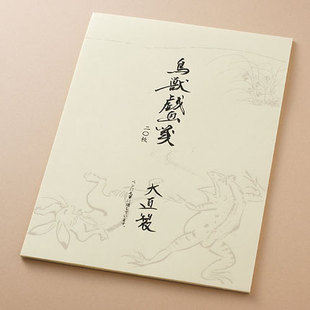 鳥獣戯画箋
二〇枚
大直製